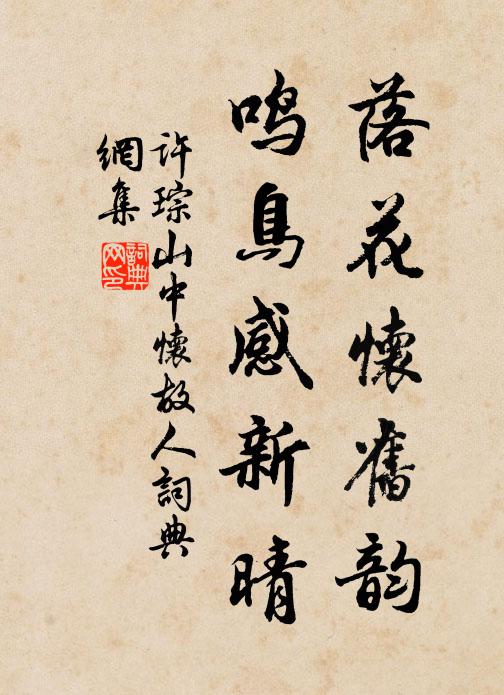 落花懷舊韵
鸣鳥感新晴
许琮山中懷故人詞典
網集
詞典
网印